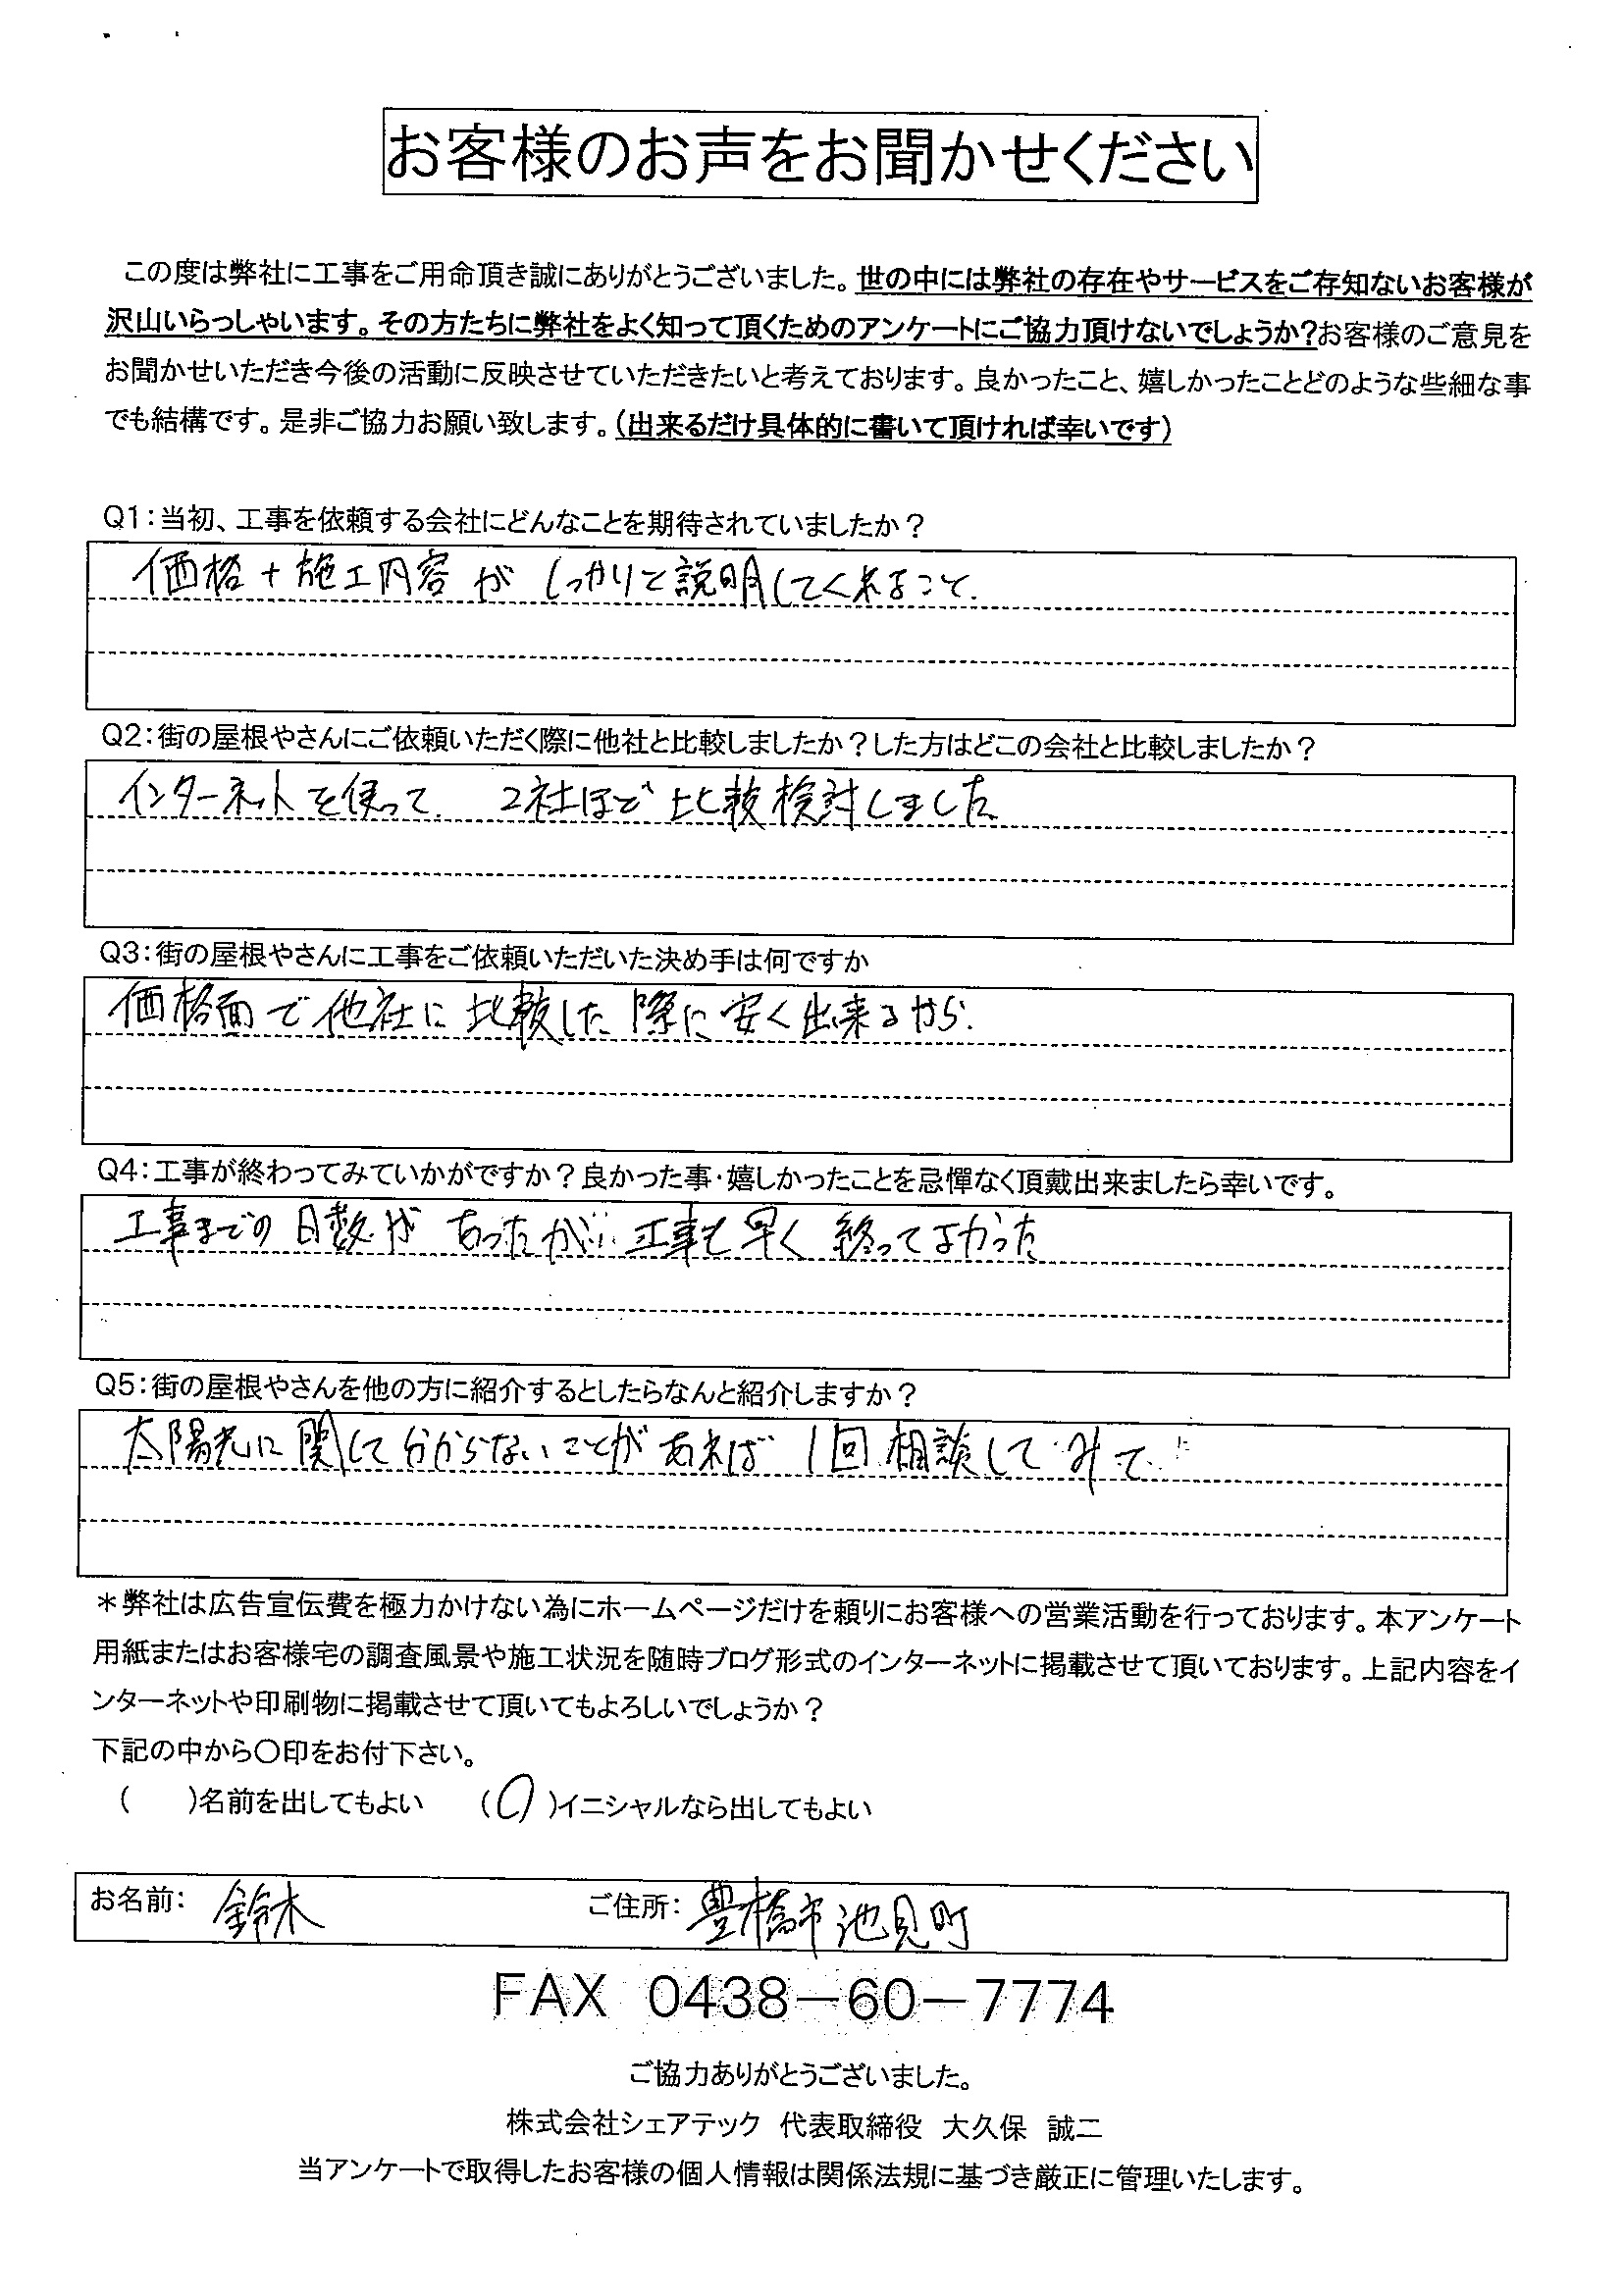 お客様のお声をお聞かせください
この度は弊社に工事をご用命頂き誠にありがとうございました。世の中には弊社の存在やサービスをご存知ないお客様が
沢山いらっしゃいます。その方たちに弊社をよく知って頂くためのアンケートにご協力頂けないでしょうか?お客様のご意見を
お聞かせいただき今後の活動に反映させていただきたいと考えております。良かったこと、嬉しかったことどのような些細な事
でも結構です。是非ご協力お願い致します。(出来るだけ具体的に書いて頂ければ幸いです)
Q1:当初、工事を依頼する会社にどんなことを期待されていましたか?
価格+施工内容が しっかりと説明してくれること.
Q2:街の屋根やさんにご依頼いただく際に他社と比較しましたか?した方はどこの会社と比較しましたか?
インターネットを使って. 2社ほど比較検討しました
Q3:街の屋根やさんに工事をご依頼いただいた決め手は何ですか
価格面で他社に比較した際に安く出来るから.
Q4:工事が終わってみていかがですか?良かった事・嬉しかったことを忌憚なく頂戴出来ましたら幸いです。
工事までの日数があったが… 工事も早く終ってよかった
Q5:街の屋根やさんを他の方に紹介するとしたらなんと紹介しますか?
太陽光に関して分からないことがあれば 1回相談してみて
*弊社は広告宣伝費を極力かけない為にホームページだけを頼りにお客様への営業活動を行っております。本アンケート
用紙またはお客様宅の調査風景や施工状況を随時ブログ形式のインターネットに掲載させて頂いております。上記内容をイ
ンターネットや印刷物に掲載させて頂いてもよろしいでしょうか?
下記の中から〇印をお付下さい。
( )名前を出してもよい (〇)イニシャルなら出してもよい
お名前: 鈴木 ご住所: 豊橋市池見町
FAX 0438-60-7774
ご協力ありがとうございました。
株式会社シェアテック 代表取締役 大久保 誠二
当アンケートで取得したお客様の個人情報は関係法規に基づき厳正に管理いたします。